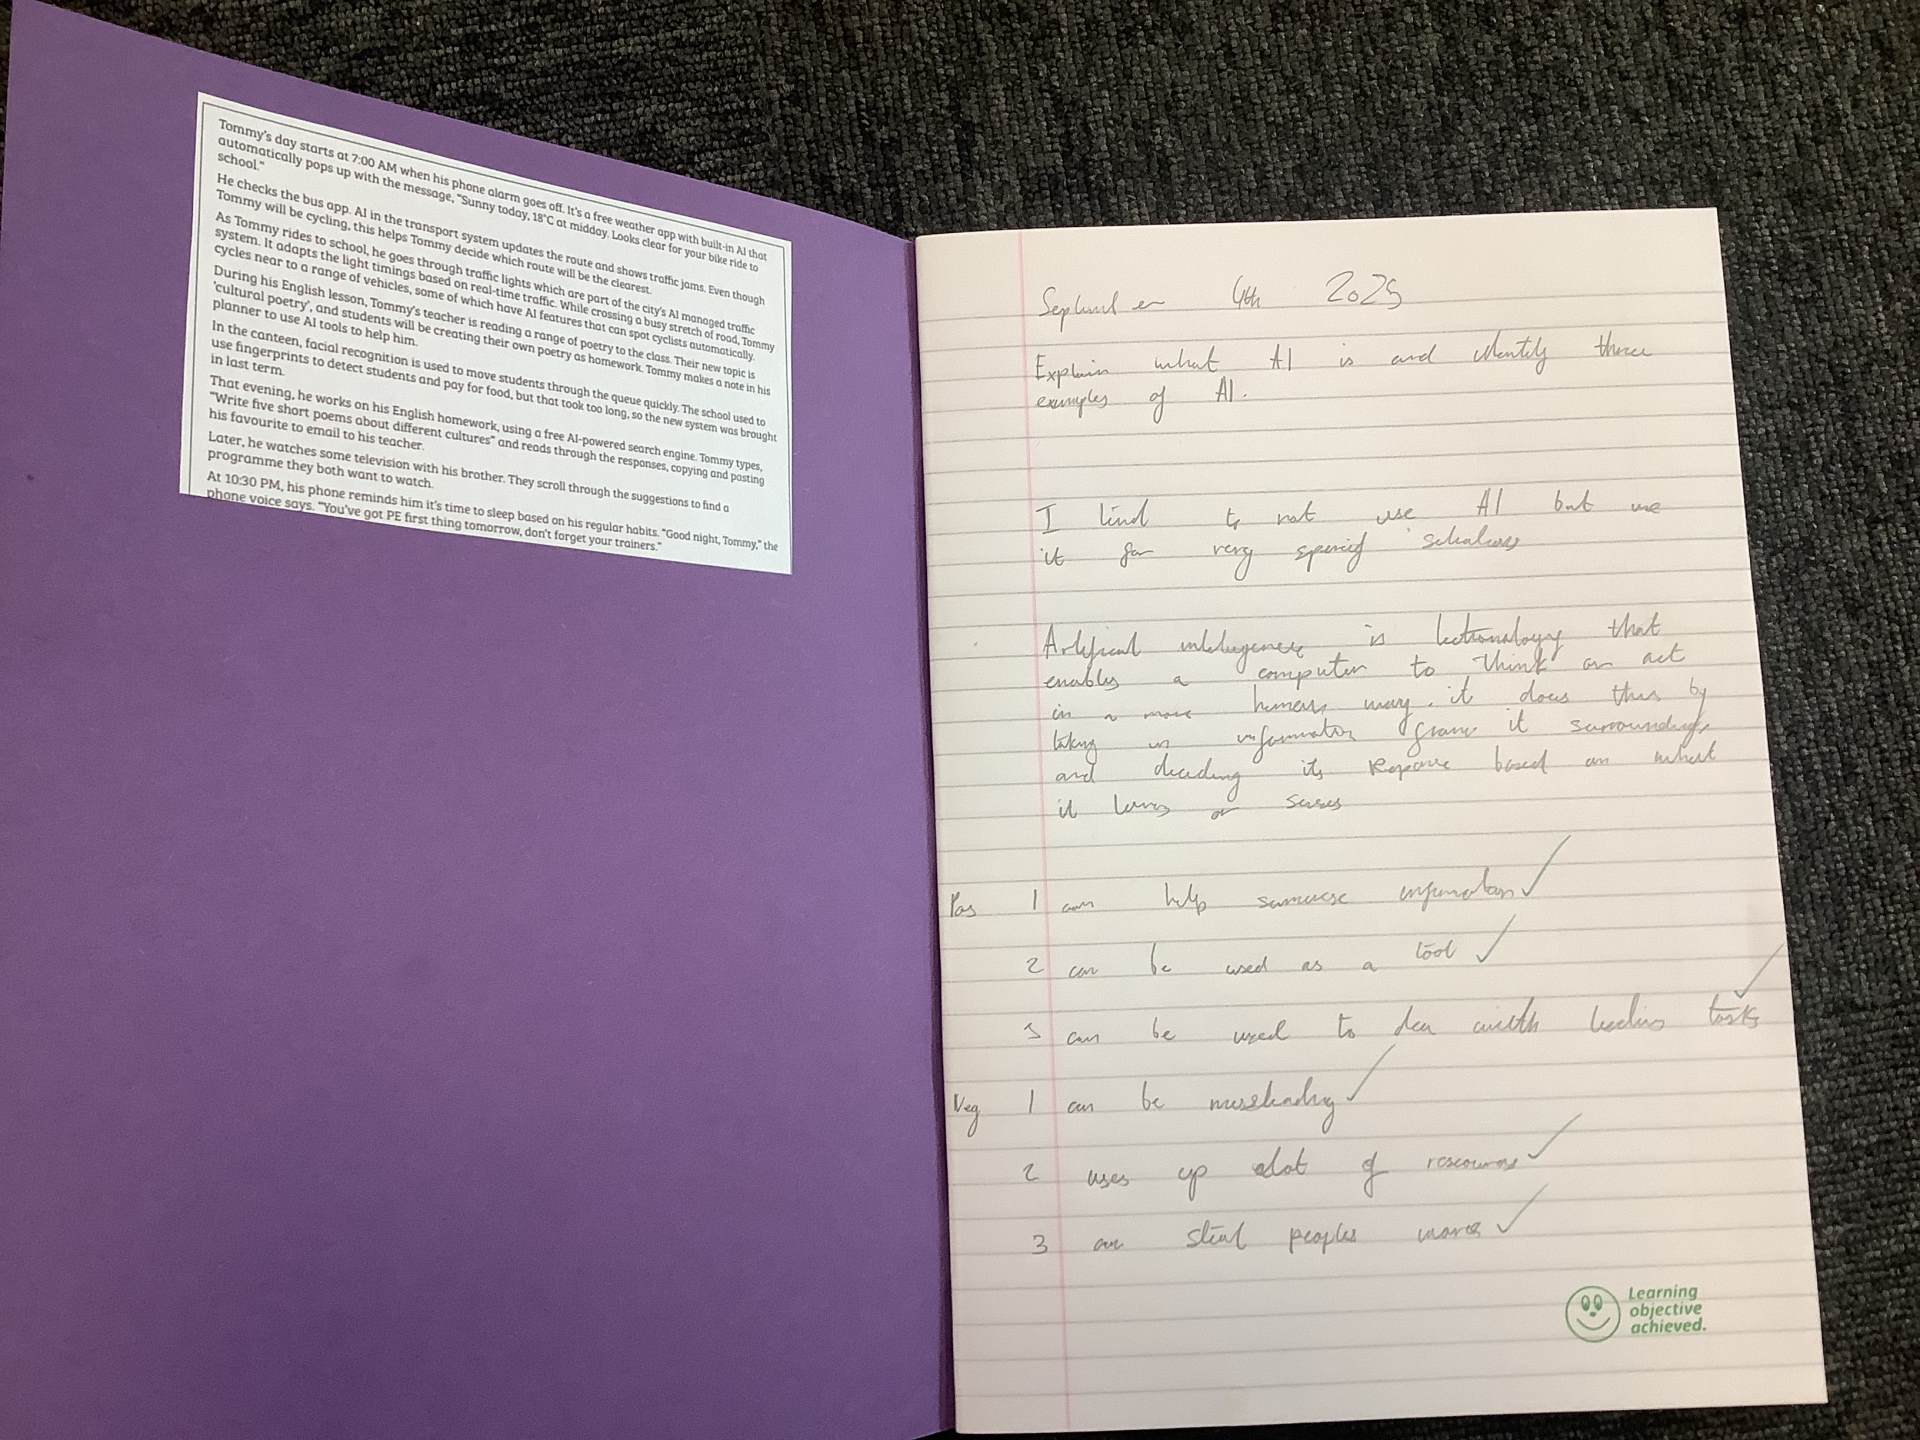 Tommy's day starts at 7:00 AM when his phone alarm goes off. It's a free weather app with built-in AI that
automatically pops up with the message, "Sunny today, 18°C at midday. Looks clear for your bike ride to
school."
He checks the bus app. AI in the transport system updates the route and shows traffic jams. Even though
Tommy will be cycling, this helps Tommy decide which route will be the clearest.
As Tommy rides to school, he goes through traffic lights which are part of the city's AI managed traffic
system. It adapts the light timings based on real-time traffic. While crossing a busy stretch of road, Tommy
cycles near to a range of vehicles, some of which have AI features that can spot cyclists automatically.
During his English lesson, Tommy's teacher is reading a range of poetry to the class. Their new topic is
'cultural poetry', and students will be creating their own poetry as homework. Tommy makes a note in his
planner to use AI tools to help him.
In the canteen, facial recognition is used to move students through the queue quickly. The school used to
use fingerprints to detect students and pay for food, but that took too long, so the new system was brought
in last term.
That evening, he works on his English homework, using a free AI-powered search engine. Tommy types,
"Write five short poems about different cultures" and reads through the responses, copying and pasting
his favourite to email to his teacher.
Later, he watches some television with his brother. They scroll through the suggestions to find a
programme they both want to watch.
At 10:30 PM, his phone reminds him it's time to sleep based on his regular habits. "Good night, Tommy," the
phone voice says. "You've got PE first thing tomorrow, don't forget your trainers."
September 4th 2025
Explain what AI is and identify three
examples of AI.
I tend to not use AI but use
it for very
is that
enables a computer to think or act
in a more human way. it does this by
taking in information from it surroundings
and deciding its response based on what
it or senses
Pos 1 can help information
2 can be used as a tool
3 can be used to with tasks
Neg 1 can be missleading
2 uses up alot of
3 can steal peoples
Learning
objective
achieved.